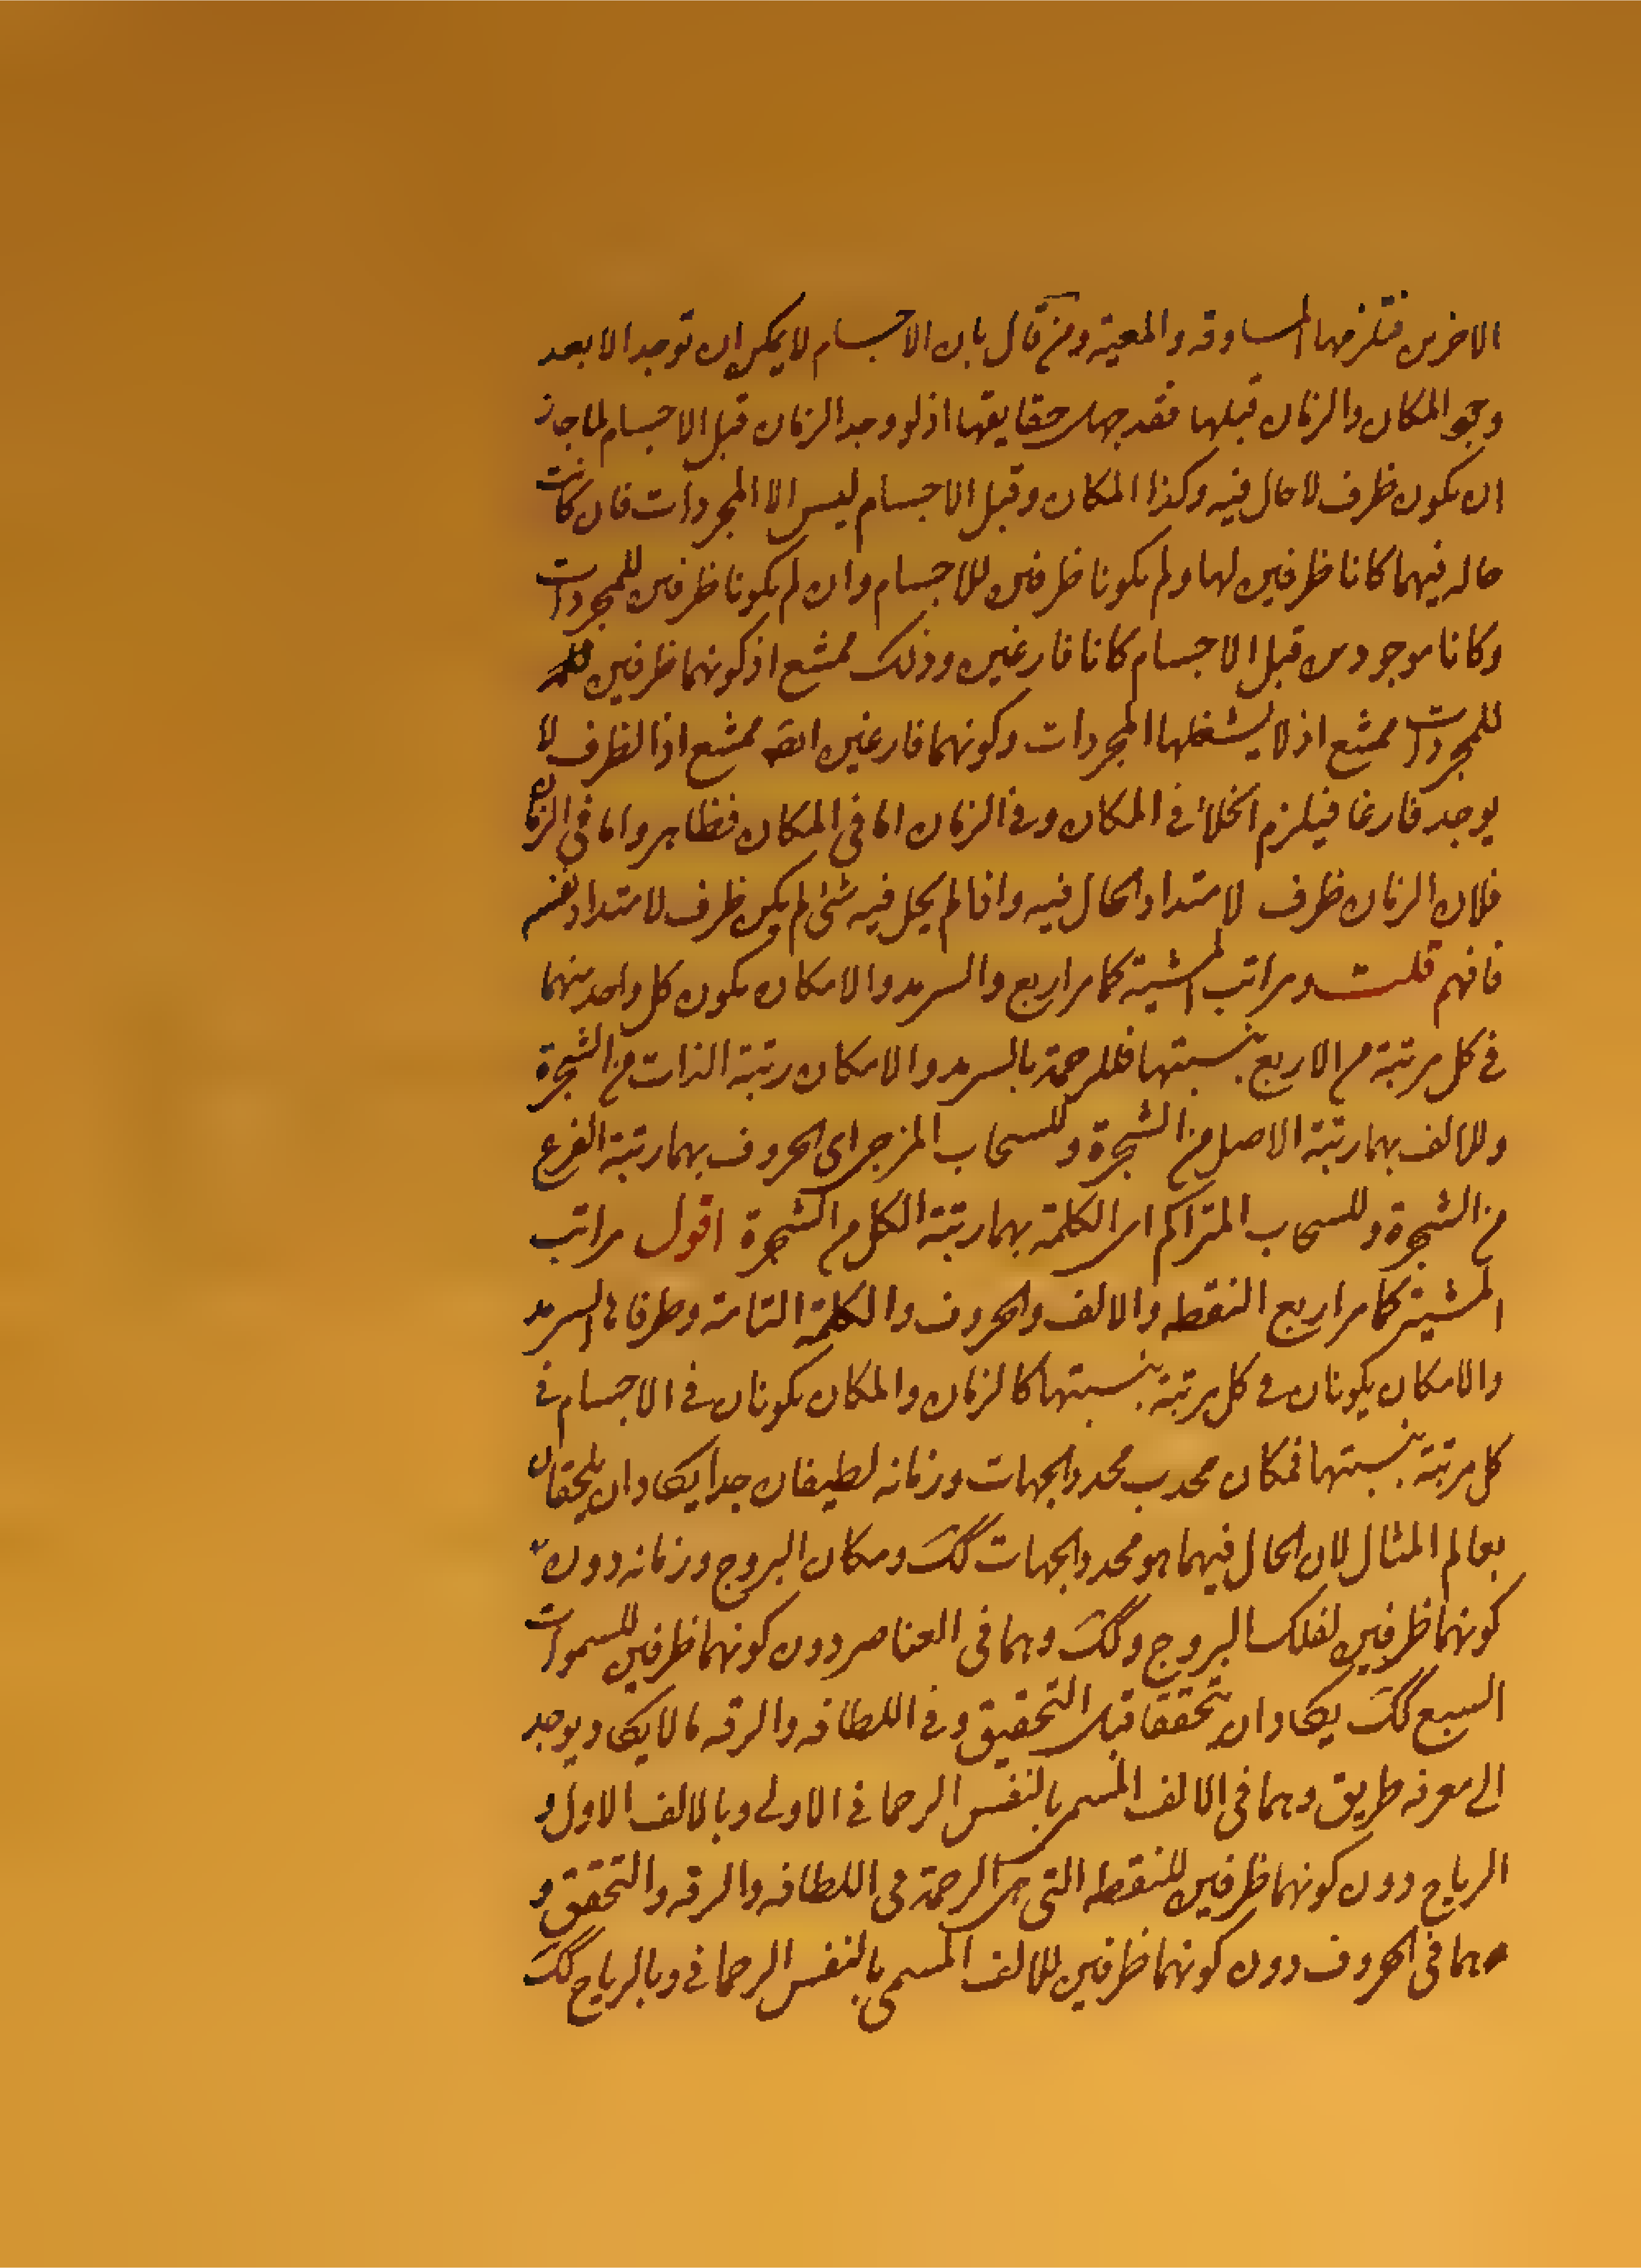 الاخرين فتلزمها المساوقه والمعية ومن قال بان الاجسام لا يمكن ان توجد الا بعد
وجو المكان والزمان قبلها فقد جهل حقايقها اذ لو وجد الزمان قبل الاجسام لما جاز
ان يكون ظرف لا حال فيه وكذا المكان وقبل الاجسام ليس الا المجردات فان كانت
حاله فيهما كانا ظرفين لها ولم يكونا ظرفين للاجسام وان لم يكونا ظرفين للمجردات
وكانا موجودين قبل الاجسام كانا فارغين وذلك ممتنع اذ كونهما ظرفين
للمجردات ممتنع اذ لا يشغلها المجردات وكونهما فارغين ايضه ممتنع اذ الظرف لا
يوجد فارغا فيلزم الخلاء في المكان وفي الزمان اما في المكان فظاهر واما في الزمان
فلان الزمان ظرف لامتداد الحال فيه واذا لم يحل فيه شئ لم يكن ظرف لامتداد نفسه
فافهم قلت ومراتب المشية كما مر اربع والسرمد والامكان يكون كل واحد منهما
في كل مرتبة من الاربع بنسبتها فللرحمة بالسرمد والامكان رتبة الذات من الشجرة
وللالف بهما رتبة الاصل من الشجرة وللسحاب المزجى اى الحروف بهما رتبة الفرع
من الشجرة وللسحاب المتراكم اى الكلمة بهما رتبة الكل من الشجرة اقول مراتب
المشية كما مر اربع النقطه والالف والحروف والكلمة التامة وظرفاها السرمد
والامكان يكونان في كل مرتبة بنسبتها كالزمان والمكان يكونان في الاجسام في
كل مرتبة بنسبتهما فمكان محدب محدد الجهات وزمانه لطيفان جدا يكادان يلحقان
بعالم المثال لان الحال فيهما هو محدد الجهات كك ومكان البروج وزمانه دون
كونهما ظرفين لفلك البروج وكك وهما في العناصر دون كونهما ظرفين للسموات
السبع كك يكادان يتحققا قبل التحقيق وفي اللطافه والرقه ما لا يكاد يوجد
الى معرفه طريق وهما في الالف المسمى بالنفس الرحماني الاولى وبالالف الاول و
الرياح دون كونهما ظرفين للنقطه التى هى الرحمة في اللطافه والرقه والتحقق و
هما في الحروف دون كونهما ظرفين للالف المسمى بالنفس الرحماني وبالرياح كك